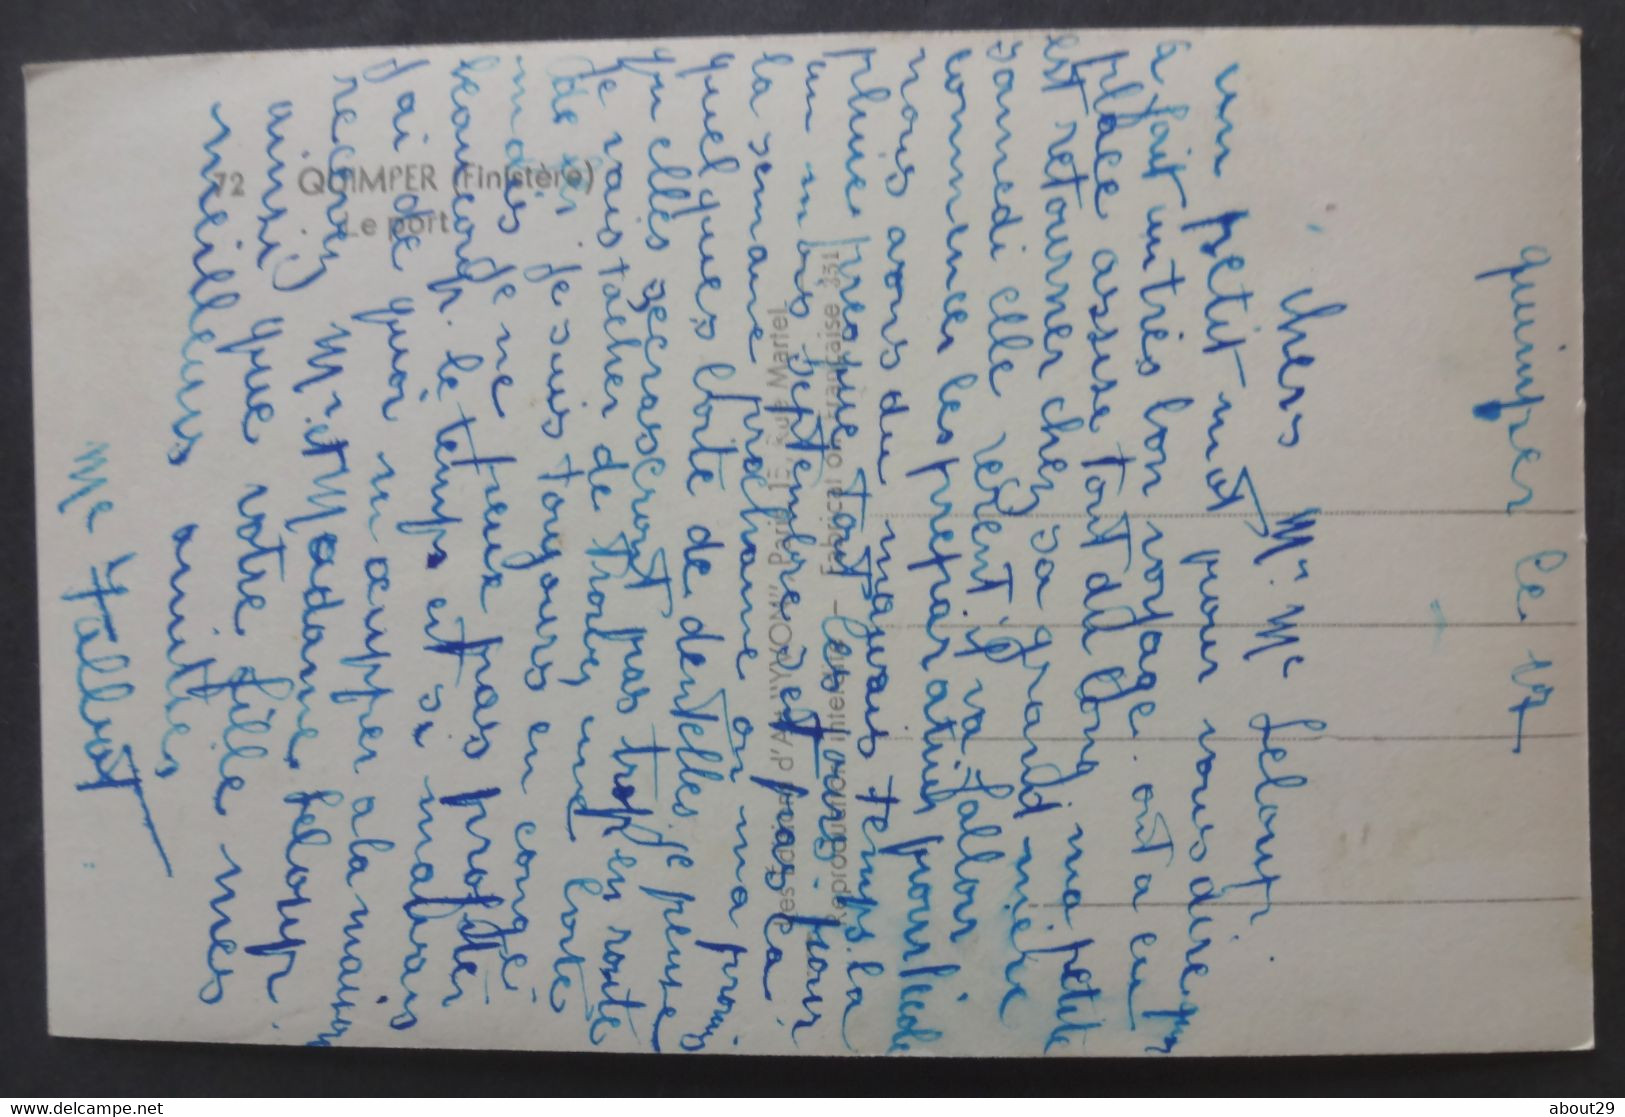 quimper le 17
chers Mr. Me Leloup.
un petit mot pour vous dire
a fait un très bon voyage. on a eu
place assise tout du long ma petite
est retourner chez sa grand mère
samedi elle revient il va falloir
commencer les préparatifs pour l'école
nous avons du mauvais temps. la
pluie presque tout les jours pour
un mois septembre et pas la
la semaine prochaine on m'a promis
quelques boite de dentelles je pense
qu elles secrasseront pas trop en route
je vais tacher de trouver une boite
je suis toujours en congé
mais je ne peux pas profiter
beaucoup. le temps est si mauvais
j'ai de quoi m'occuper a la maison
recevez Mr et Madame Leloup.
ainsi que votre fille mes
meilleurs amitiés
Me Fallbot
72 QUIMPER (Finistère)
Le port
d'Art "YVON", Paris, 15, Rue Martel
Reproduction interdite – Fabrication française 331
about29
delcampe.net